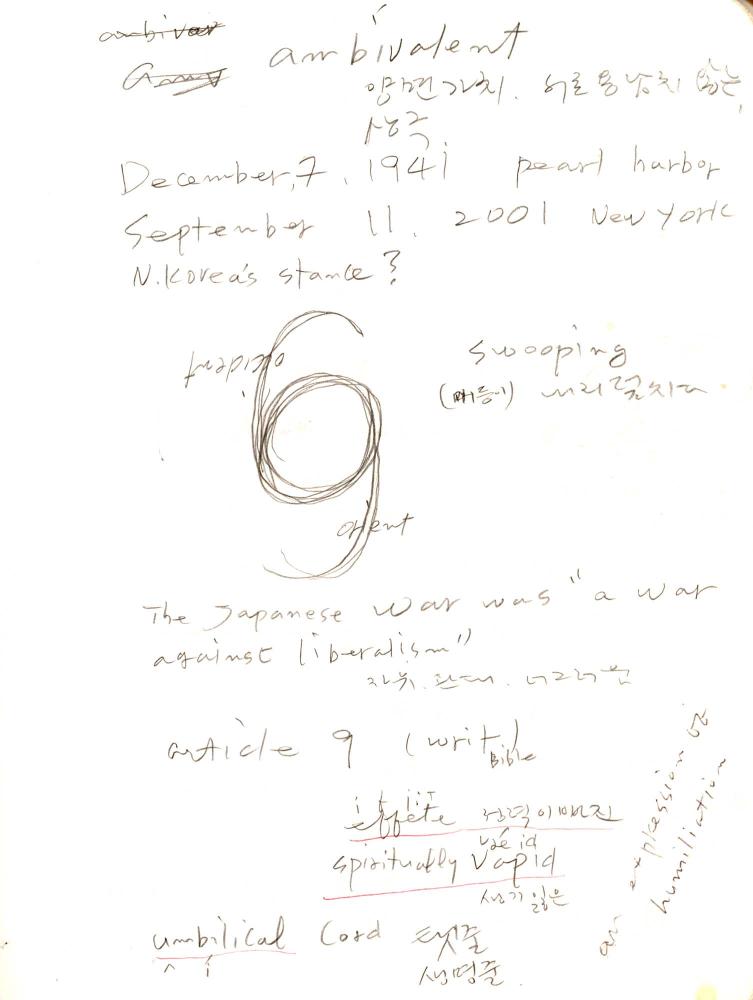 ambivalent
양면가치. 서로 용납치 않는,
상극
December, 7, 1941 pearl harbor
September 11. 2001 New York
N.Korea's stance?
occident
swooping
(매 등이) 내리 덮치다
orient
The Japanese war was "a war
against liberalism"
자유. 관대. 너그러움
article 9 (writ)
Bible
effete 정력이 빠진
spiritually vapid
생기 잃은
umbilical Cord 탯줄
생명줄
an expression of
humiliation